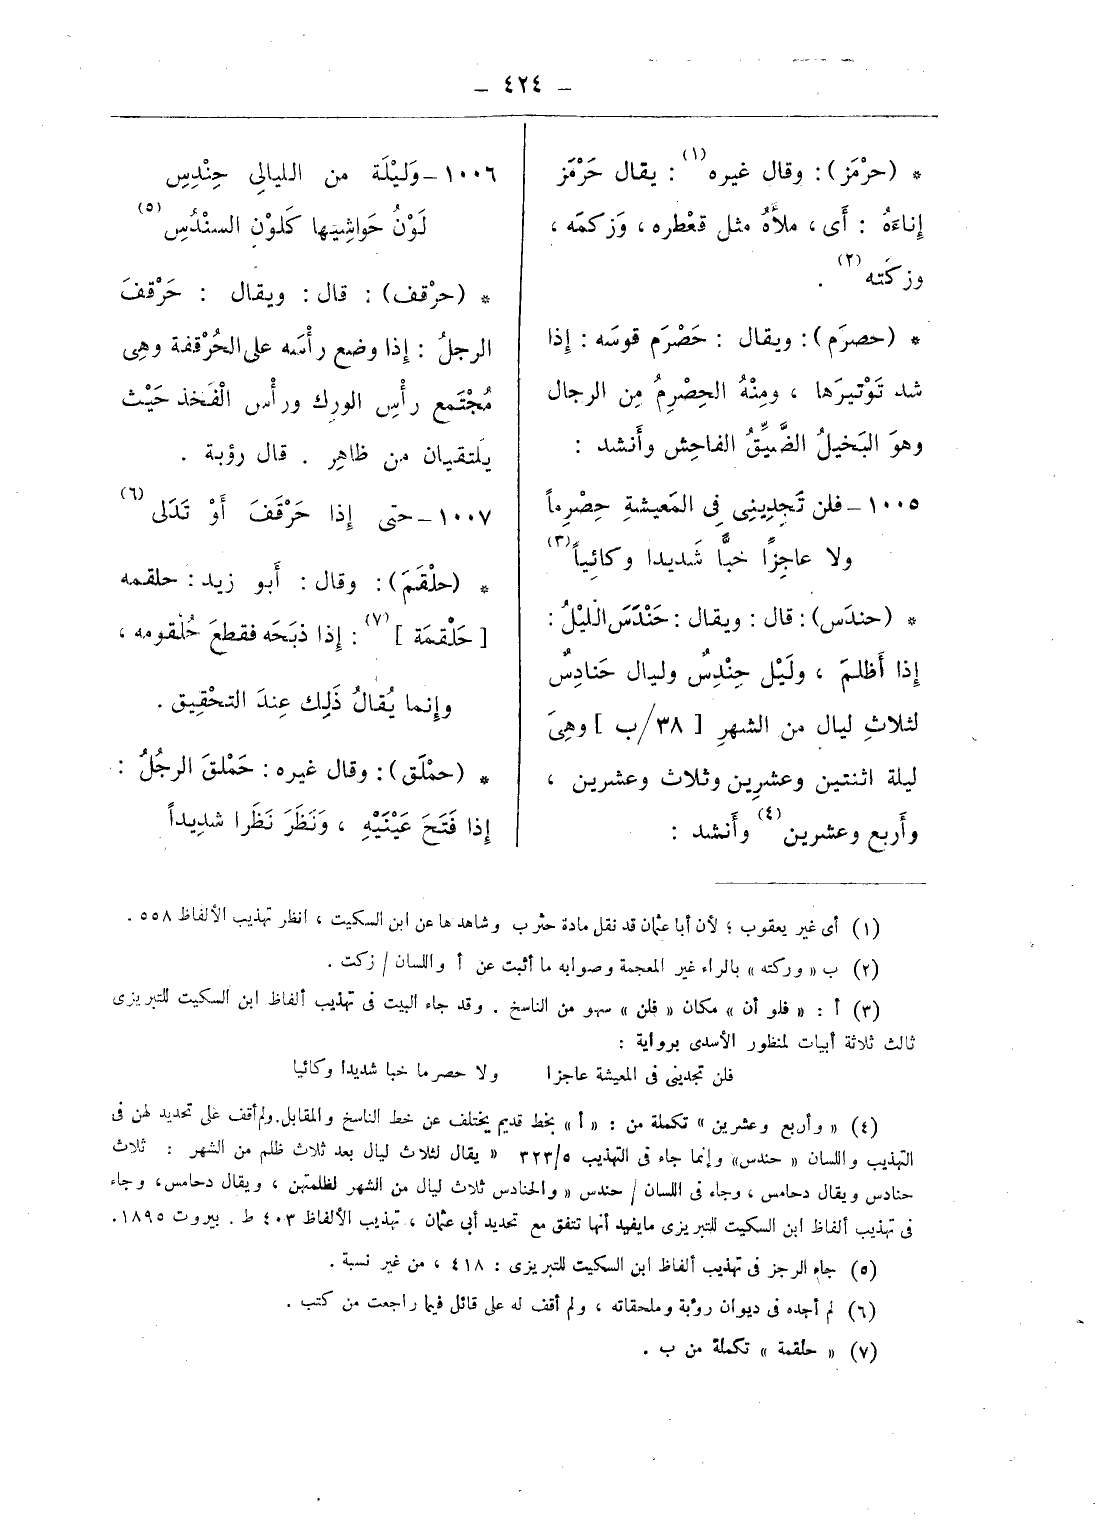 – ٤٢٤ –
* (حرْمَز): وقال غيره(١): يقال حَرْمَز
إناءَهُ : أَى ، ملأَهُ مثل قعْطره ، وَزكمَه ،
وزكَته(٢) .
* (حصرَم): ويقال : حَصْرَم قوسَه : إذا
شد تَوْتيرَها ، ومِنْهُ الحِصْرِمُ مِن الرجال
وهوَ البَخيلُ الضَّيِّقُ الفاحِش وأَنشد :
١٠٠٥ – فلن تَجِدِينِى فِى المَعيشةِ حِصْرِماً
ولا عاجِزًا خبًّا شَديدا وكائِياً(٣)
* (حندَس): قال : ويقال : حَنْدَسَ الَليْلُ :
إذا أَظلمَ ، ولَيْل حِنْدِسٌ وليال حَنادِسٌ
لثلاثِ ليال من الشهرِ [ ٣٨/ب ] وهِىَ
ليلة اثنتين وعشرِين وثلاث وعشرين ،
وأَربع وعشرين(٤) وأَنشد :
١٠٠٦ – وَليْلَة من الليالِى حِنْدِسِ
لَوْنُ حَواشِيها كَلوْن السنْدُسِ(٥)
* (حرْقف): قال : ويقال : حَرْقفَ
الرجلُ : إذا وضع رأْسَه على الحُرْقفة وهِى
مُجْتَمع رأْسِ الورك ورأْس الْفَخذ حَيْث
يلتقيان من ظاهِر . قال رؤبة .
١٠٠٧ – حتى إذا حَرْقَفَ أَوْ تَدَلى(٦)
* (حلْقَمَ): وقال : أَبو زيد : حلقمه
[ حَلْقمَة ](٧) : إذا ذبَحَه فقطعَ حُلقومه ،
وإنما يُقالُ ذَلِك عِندَ التحْقِيق .
* (حمْلَق): وقال غيره : حَمْلقَ الرجُلُ :
إذا فَتَحَ عَيْنَيْهِ ، وَنَظَرَ نَظَرا شديداً
(١) أى غير يعقوب ؛ لأن أبا عثمان قد نقل مادة حثرب وشاهدها عن ابن السكيت ، انظر تهذيب الألفاظ ٥٥٨ .
(٢) ب « وركته » بالراء غير المعجمة وصوابه ما أثبت عن أ واللسان / زكت .
(٣) أ : « فلو أن » مكان « فلن » سهو من الناسخ . وقد جاء البيت فى تهذيب ألفاظ ابن السكيت للتبريزى
ثالث ثلاثة أبيات لمنظور الأسدى برواية :
فلن تجدينى فى المعيشة عاجزا ولا حصرما خبا شديدا وكائيا
(٤) « وأربع وعشرين » تكملة من : « أ » بخط قديم يختلف عن خط الناسخ والمقابل. ولم أقف على تحديد لهن فى
التهذيب واللسان « حندس» وإنما جاء فى التهذيب ٣٢٣/٥ « يقال لثلاث ليال بعد ثلاث ظلم من الشهر : ثلاث
حنادس ويقال دحامس ، وجاء فى اللسان / حندس « والحنادس ثلاث ليال من الشهر لظلمتهن ، ويقال دحامس، وجاء
فى تهذيب ألفاظ ابن السكيت للتبريزى مايفيد أنها تتفق مع تحديد أبى عثمان ، تهذيب الألفاظ ٤٠٣ ط . بيروت ١٨٩٥.
(٥) جاء الرجز فى تهذيب ألفاظ ابن السكيت للتبريزى : ٤١٨ ، من غير نسبة .
(٦) لم أجده فى ديوان رؤبة وملحقاته ، ولم أقف له على قائل فيما راجعت من كتب .
(٧) « حلقمة » تكملة من ب .